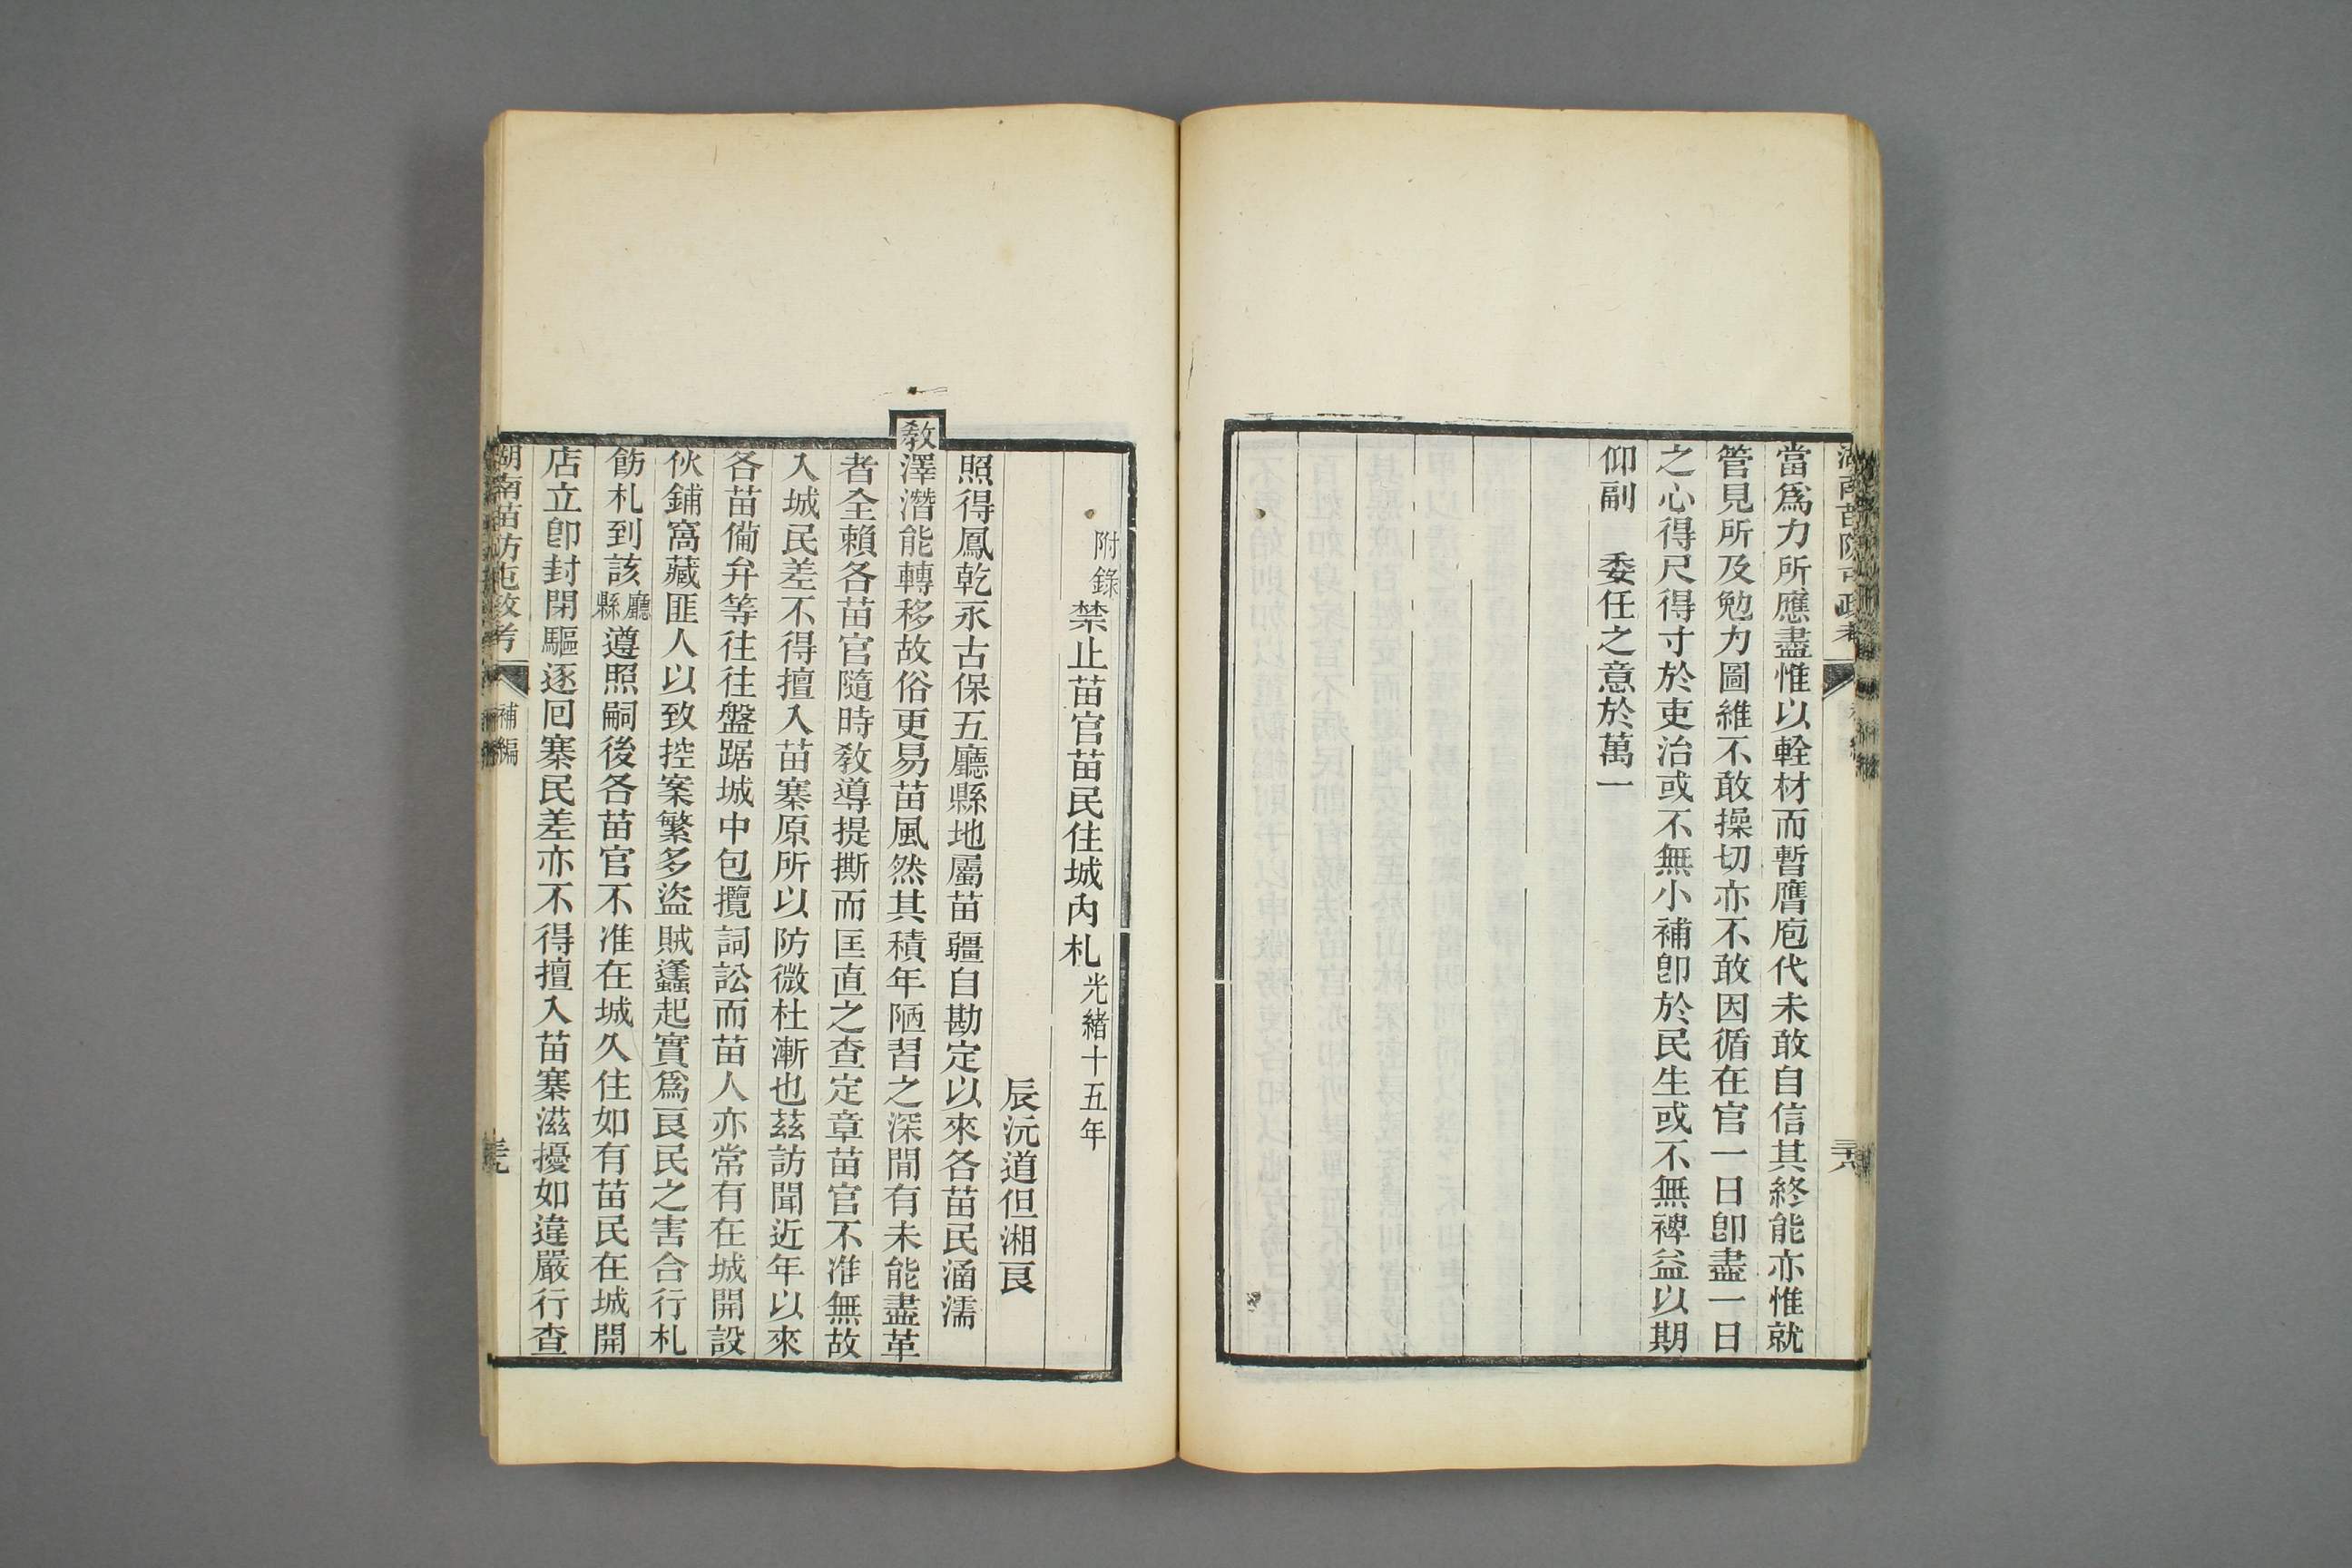 湖南苗防屯政考
補編
當爲力所應盡惟以輇材而暫膺庖代未敢自信其終能亦惟就
管見所及勉力圖維不敢操切亦不敢因循在官一日卽盡一日
之心得尺得寸於吏治或不無小補卽於民生或不無裨益以期
仰副　委任之意於萬一
附錄禁止苗官苗民住城內札光緒十五年
辰沅道但湘良
照得鳳乾永古保五廳縣地屬苗疆自勘定以來各苗民涵濡
教澤潛能轉移故俗更易苗風然其積年陋習之深間有未能盡革
者全賴各苗官隨時教導提撕而匡直之查定章苗官不准無故
入城民差不得擅入苗寨原所以防微杜漸也茲訪聞近年以來
各苗備弁等往往盤踞城中包攬詞訟而苗人亦常有在城開設
伙鋪窩藏匪人以致控案繁多盜賊蠭起實爲良民之害合行札
飭札到該廳縣遵照嗣後各苗官不准在城久住如有苗民在城開
店立卽封閉驅逐回寨民差亦不得擅入苗寨滋擾如違嚴行查
湖南苗防屯政考
補編